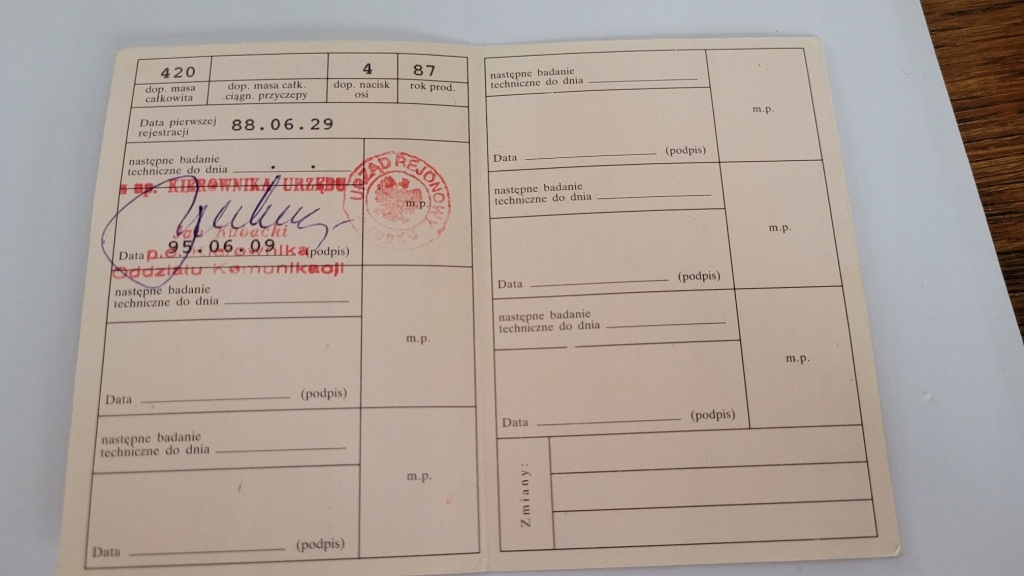 420 4 87
dop. masa całkowita dop. masa całk. ciągn. przyczepy dop. nacisk osi rok prod.
Data pierwszej
rejestracji 88.06.29
następne badanie
techniczne do dnia . .
up. KIEROWNIKA URZĘDU
URZĄD REJONOWY
m.p.
Kubacki
Data 95.06.09 (podpis)
p.o. Kierownika
Oddziału Komunikacji
następne badanie
techniczne do dnia
m.p.
Data (podpis)
następne badanie
techniczne do dnia
m.p.
Data (podpis)
następne badanie
techniczne do dnia
m.p.
Data (podpis)
następne badanie
techniczne do dnia
m.p.
Data (podpis)
następne badanie
techniczne do dnia
m.p.
Data (podpis)
Zmiany: